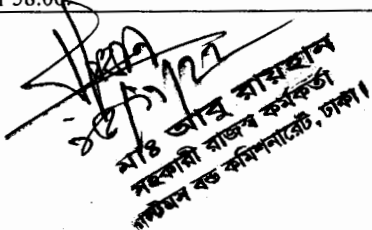 58.00
মোঃ আবু রায়হান
সহকারী রাজস্ব কর্মকর্তা
কাস্টমস বন্ড কমিশনারেট, ঢাকা।